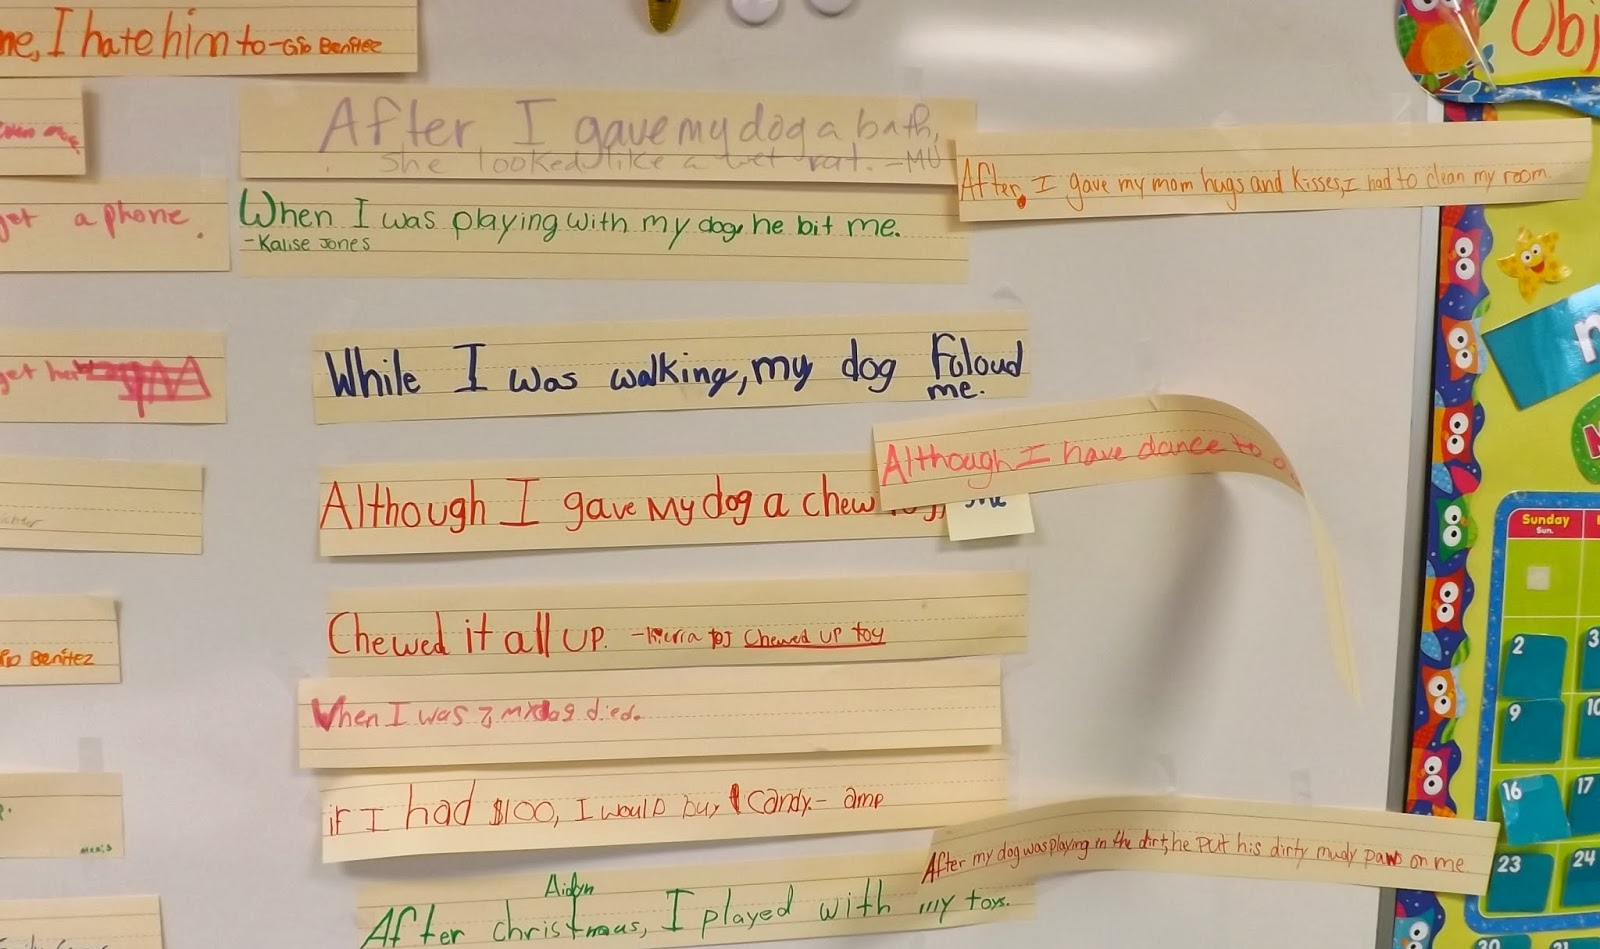 me, I hate him to-Gio Benitez
After I gave my dog a bath,
she looked like a wet rat. -MU
After, I gave my mom hugs and Kisses, I had to clean my room.
get a phone.
When I was playing with my dog, he bit me.
-Kalise Jones
While I was walking, my dog foloud
me.
get her
Although I have dance to
Although I gave my dog a chew
me
Chewed it all up. Chewed up toy
Benitez
When I was 7, my dog died.
if I had $100, I would buy 1 Candy.- amp
After my dog was playing in the dirt, he put his dirty mudy paws on me
Aidyn
After christmas, I played with my toys.
Obj
Sunday
Sun.
2
3
9
10
16
17
23
24
30
31